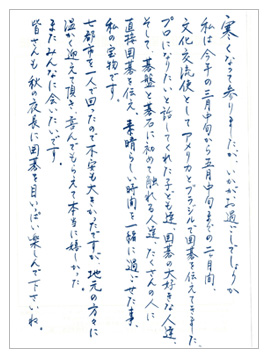 寒くなって参りましたが、いかがお過ごしでしょうか
私は今年の三月中旬から五月中旬までの二ヶ月間、
文化交流使としてアメリカとブラジルで囲碁を伝えてきました。
プロになりたいと話してくれた子ども達、囲碁の大好きな人達、
そして、碁盤と碁石に初めて触れる人達、たくさんの人に
直接囲碁を伝え、素晴らしい時間を一緒に過ごせた事、
私の宝物です。
七都市を一人で回ったので不安も大きかったですが、地元の方々に
温かく迎えて頂き、喜んでもらえて本当に嬉しかった
またみんなに会いたいです。
皆さんも秋の夜長に囲碁を目いっぱい楽しんで下さいね。